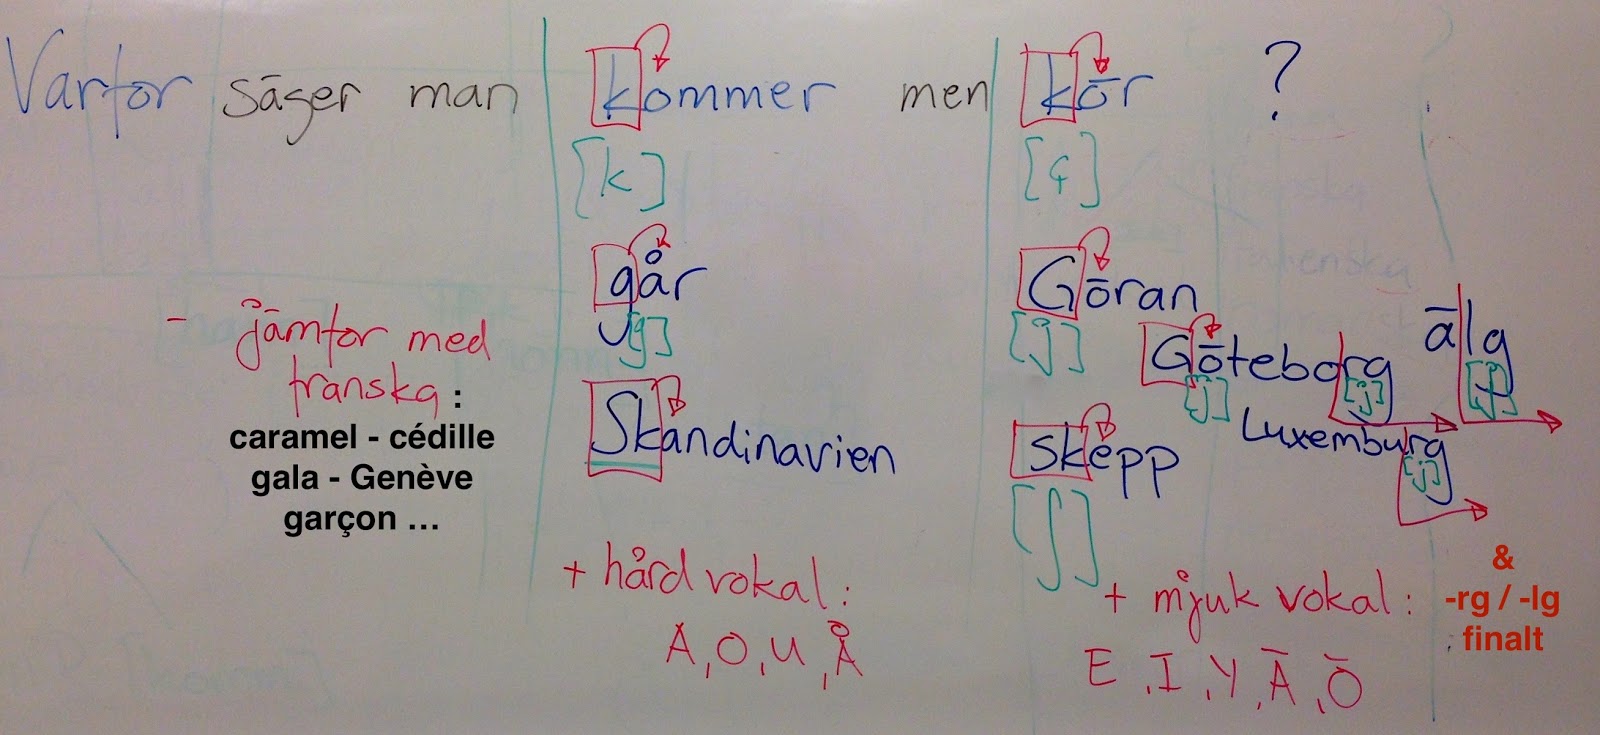 Varför säger man kommer men kör ?
[k] [ç]
går Göran
[g] [j]
- jämför med franska :
Göteborg älg
[j] [j] [j]
caramel - cédille
gala - Genève
garçon ...
Skandinavien skepp Luxemburg
[ʃ] [j]
+ hård vokal :
A, O, U, Å
+ mjuk vokal :
E, I, Y, Ä, Ö
&
-rg / -lg
finalt